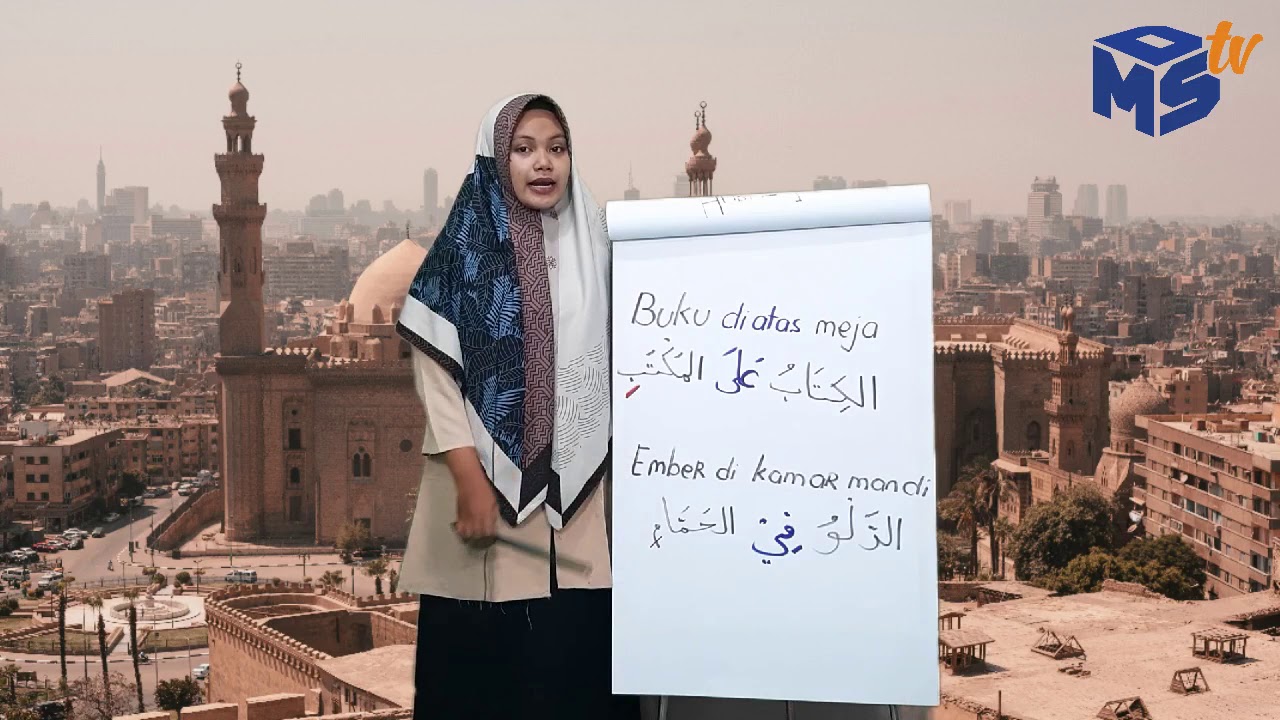 DMS tv
Buku diatas meja
الكِتَابُ عَلَى المَكْتَبِ
Ember di kamar mandi
الدَّلْوُ فِيْ الحَمَّامِ